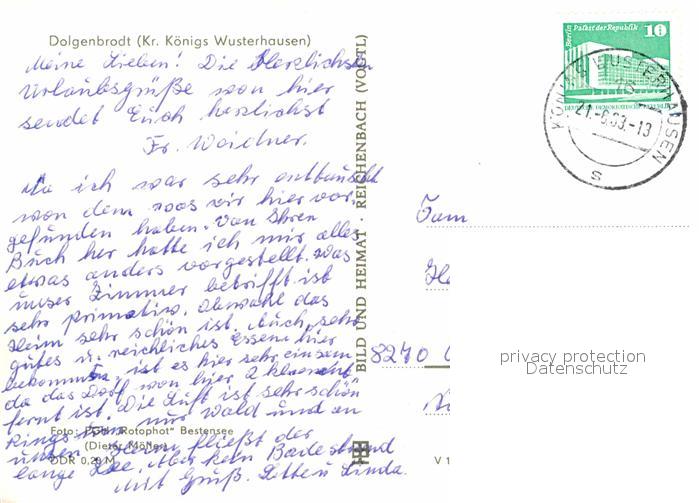 Dolgenbrodt (Kr. Königs Wusterhausen)
Meine Lieben! Die Herzlichsten
Urlaubsgrüße von hier
sendet Euch herzlichst
Fr. Weidner.
Ja ich war sehr enttäuscht
von dem was wir hier vor-
gefunden haben. Von Ihren
Buch her hatte ich mir alles
etwas anders vorgestellt. Was
unser Zimmer betrifft ist
sehr primativ. Obwohl das
Heim sehr schön ist. Auch sehr
gutes u. reichliches Essen hier
bekommen, ist es hier sehr einsam
da das Dorf von hier 2 km ent
fernt ist. Die Luft ist sehr schön
Rings nur Wald und an
unser Heim fließt der
lange See. Aber kein Badestrand
Mit Gruß. Lotte u Linda.
Foto: "Rotophot" Bestensee
(Dieter Möller)
DDR 0,20 M
BILD UND HEIMAT · REICHENBACH (VOGTL)
V 1
Berlin Palast der Republik
10
DEUTSCHE DEMOKRATISCHE REPUBLIK
KÖNIGS WUSTERHAUSEN
21.-6.83.-13
Fam
8270
privacy protection
Datenschutz